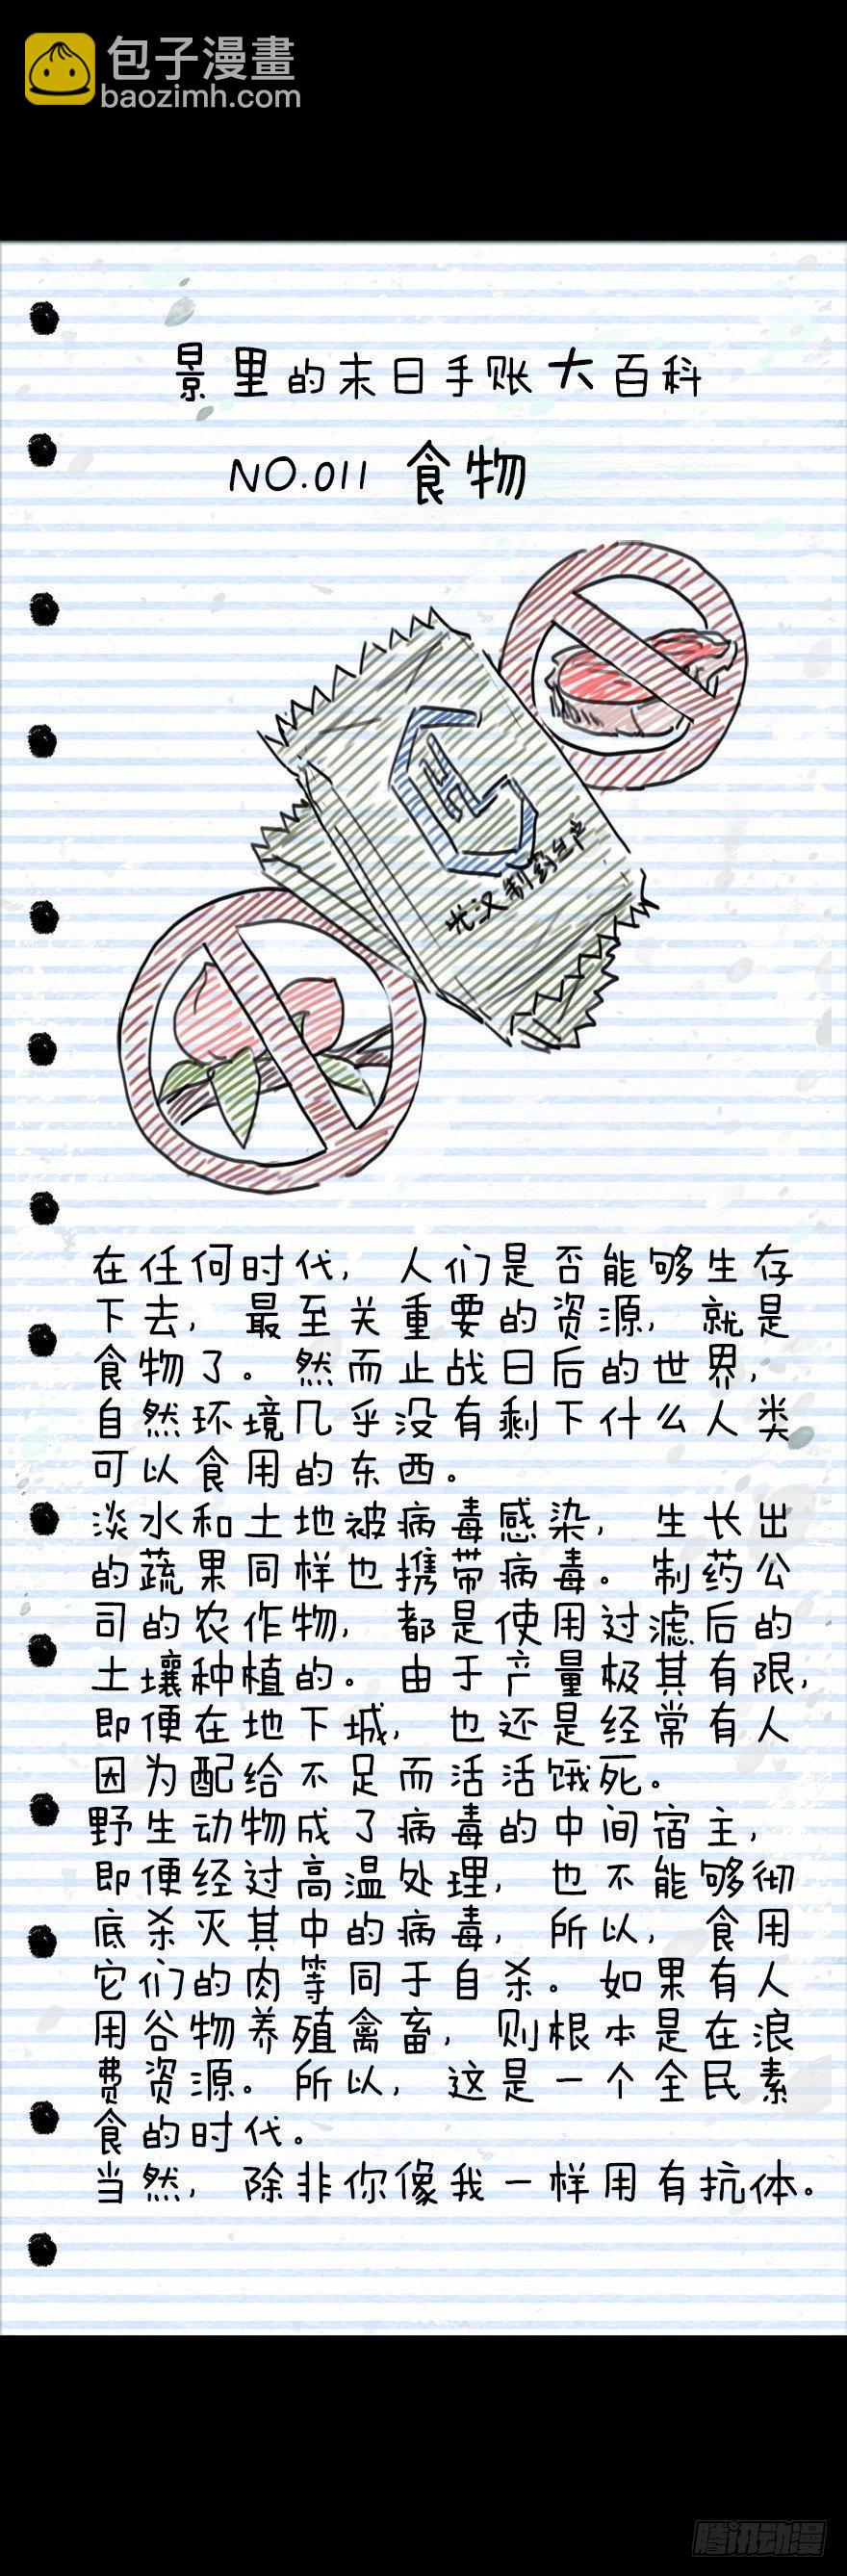 包子漫畫
baozimh.com
景里的末日手账大百科
NO.011 食物
光汉制药生产
在任何时代，人们是否能够生存
下去，最至关重要的资源，就是
食物了。然而止战日后的世界，
自然环境几乎没有剩下什么人类
可以食用的东西。
淡水和土地被病毒感染，生长出
的蔬果同样也携带病毒。制药公
司的农作物，都是使用过滤后的
土壤种植的。由于产量极其有限，
即便在地下城，也还是经常有人
因为配给不足而活活饿死。
野生动物成了病毒的中间宿主，
即便经过高温处理，也不能够彻
底杀灭其中的病毒，所以，食用
它们的肉等同于自杀。如果有人
用谷物养殖禽畜，则根本是在浪
费资源。所以，这是一个全民素
食的时代。
当然，除非你像我一样用有抗体。
腾讯动漫